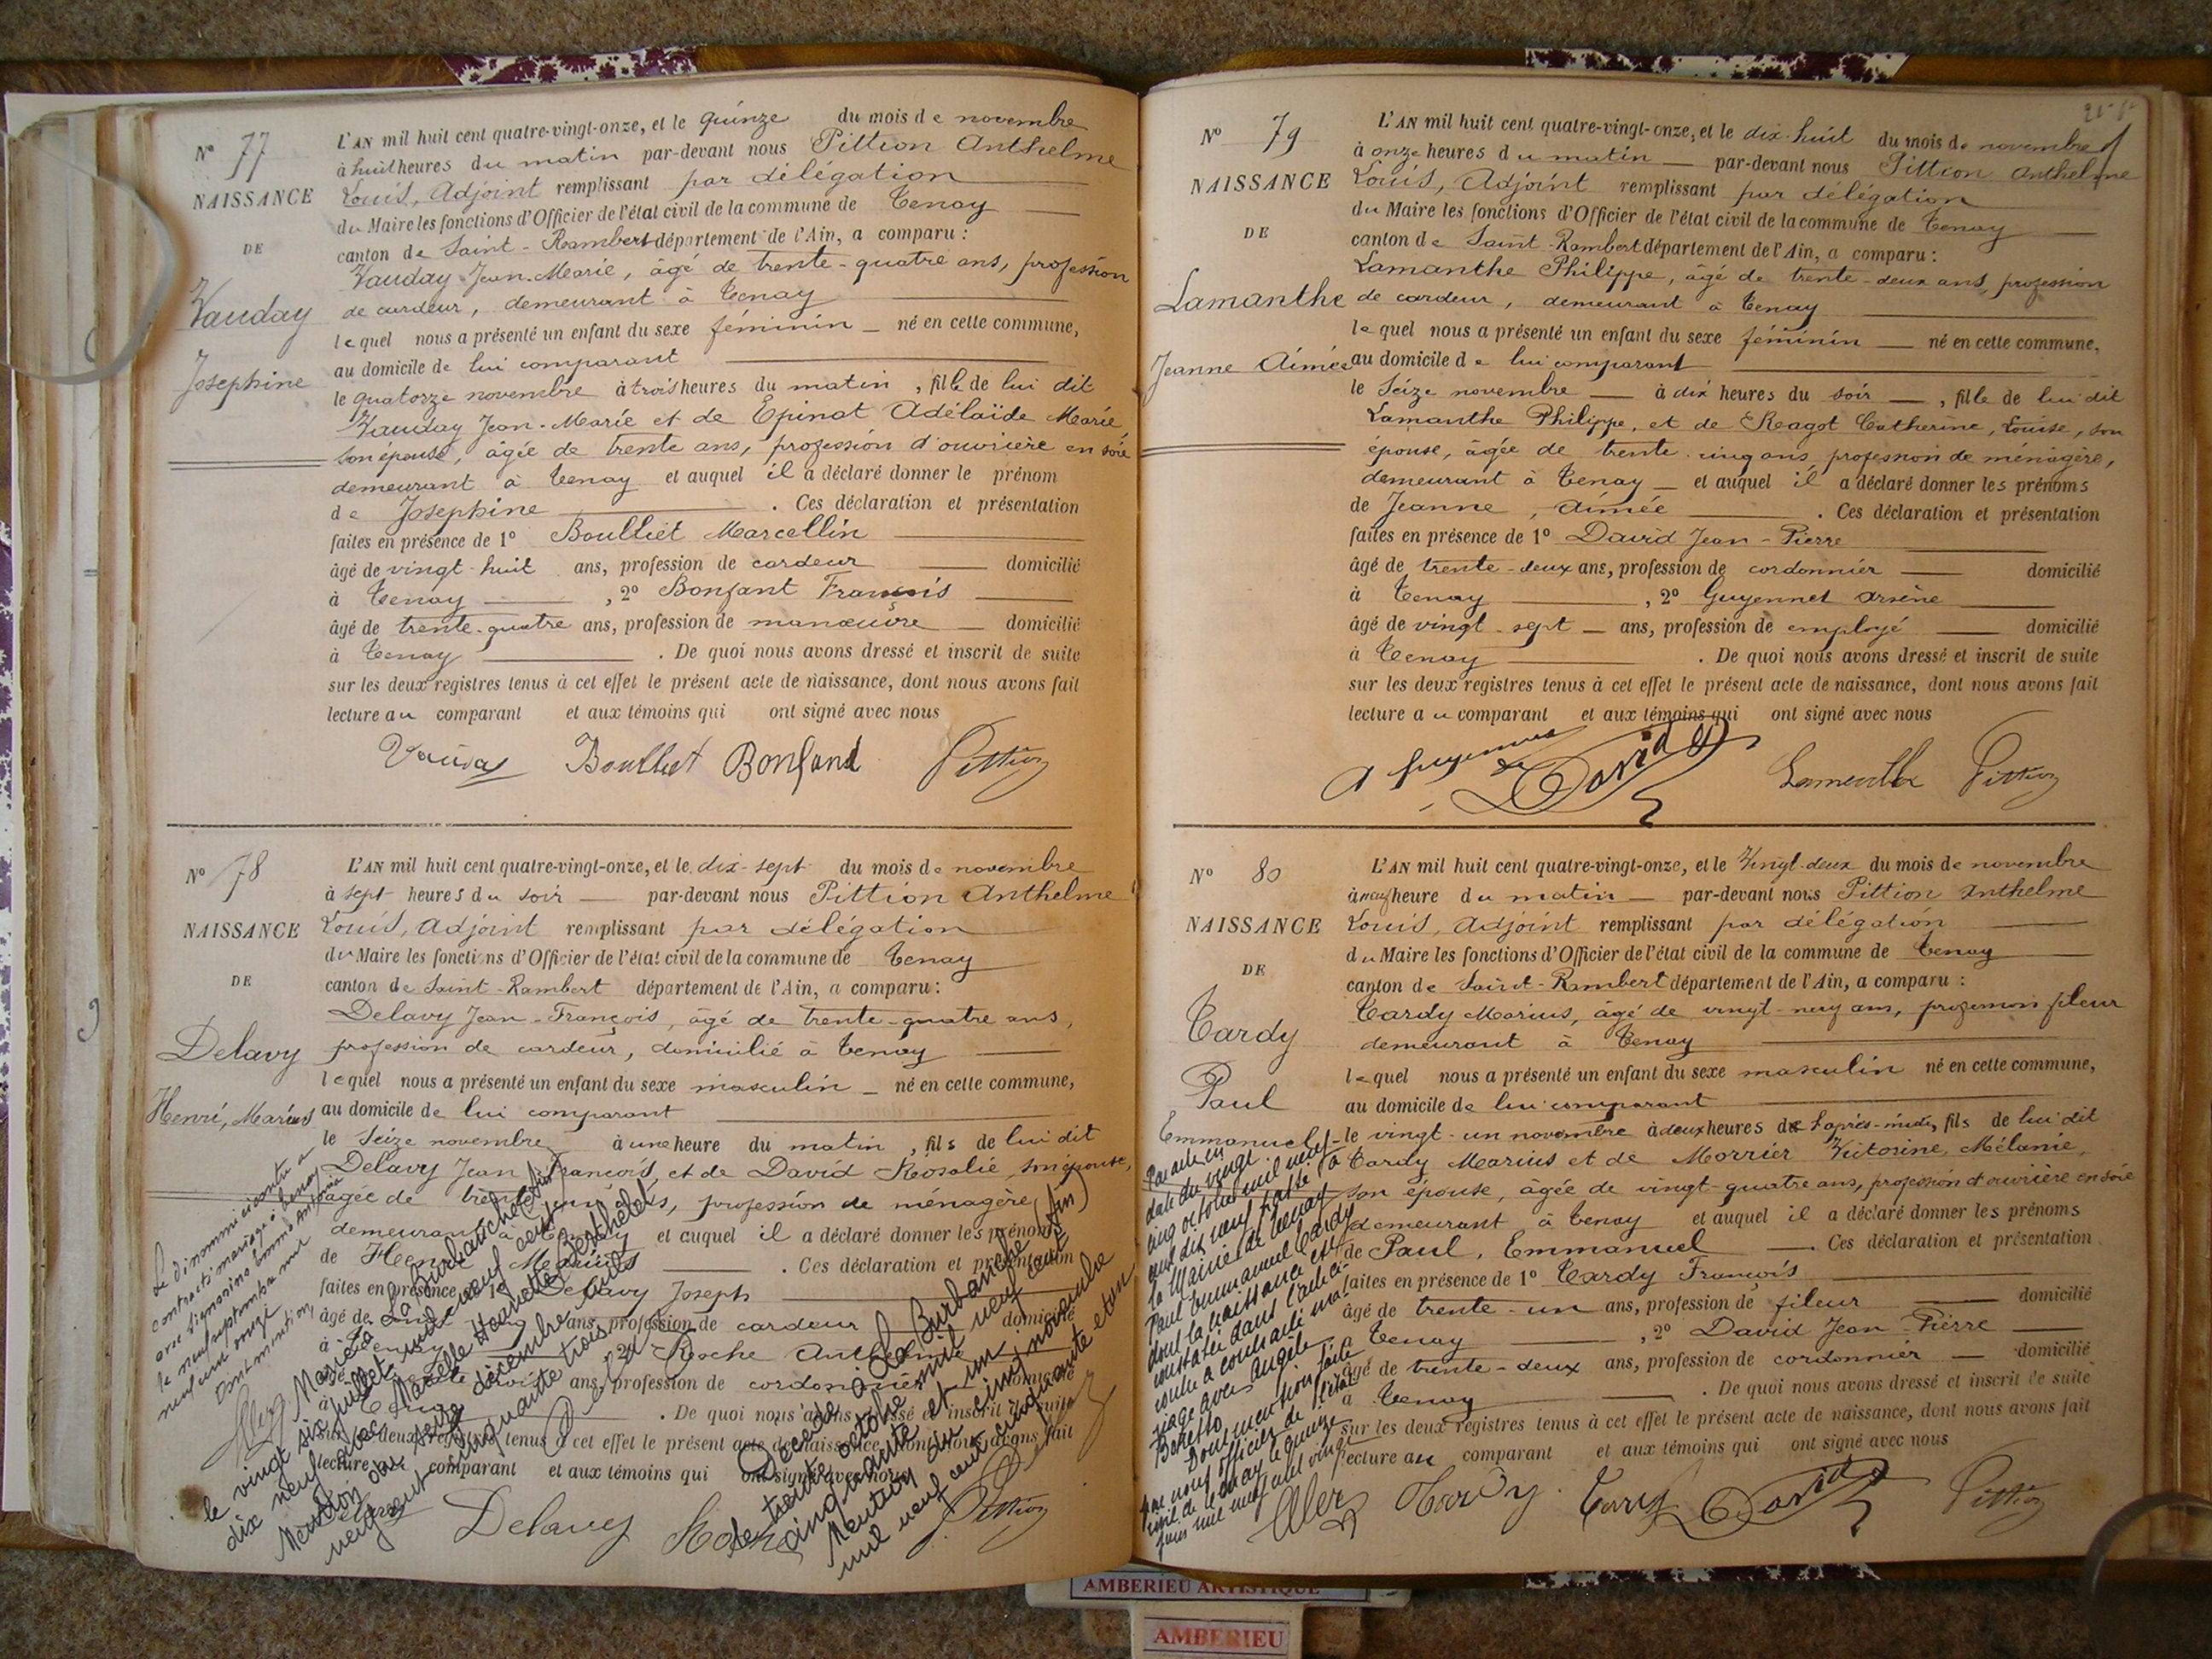 N° 77
NAISSANCE
DE
Vauday
Josephine
L'AN mil huit cent quatre-vingt-onze, et le quinze du mois de novembre
à huit heures du matin par-devant nous Pittion Anthelme
Louis, Adjoint remplissant par délégation
du Maire les fonctions d'Officier de l'état civil de la commune de Tenay
canton de Saint-Rambert département de l'Ain, a comparu :
Vauday Jean-Marie, âgé de trente-quatre ans, profession
de cardeur, demeurant à Tenay
lequel nous a présenté un enfant du sexe féminin né en cette commune,
au domicile de lui comparant
le quatorze novembre à trois heures du matin, fille de lui dit
Vauday Jean-Marie et de Epinat Adélaïde Marie,
son épouse, âgée de trente ans, profession d'ouvrière en soie
demeurant à Tenay et auquel il a déclaré donner le prénom
de Josephine . Ces déclaration et présentation
faites en présence de 1° Boulliet Marcellin
âgé de vingt-huit ans, profession de cardeur domicilié
à Tenay , 2° Bonfant François
âgé de trente-quatre ans, profession de manœuvre domicilié
à Tenay . De quoi nous avons dressé et inscrit de suite
sur les deux registres tenus à cet effet le présent acte de naissance, dont nous avons fait
lecture au comparant et aux témoins qui ont signé avec nous
Vauday Boulliet Bonfand Pittion
N° 78
NAISSANCE
DE
Delavy
Henri, Marius
L'AN mil huit cent quatre-vingt-onze, et le dix-sept du mois de novembre
à sept heures du soir par-devant nous Pittion Anthelme
Louis, Adjoint remplissant par délégation
du Maire les fonctions d'Officier de l'état civil de la commune de Tenay
canton de Saint-Rambert département de l'Ain, a comparu :
Delavy Jean-François, âgé de trente-quatre ans,
profession de cardeur, domicilié à Tenay
lequel nous a présenté un enfant du sexe masculin né en cette commune,
au domicile de lui comparant
le seize novembre à une heure du matin, fils de lui dit
Delavy Jean François, et de David Rosalie, son épouse,
âgée de trente ans, profession de ménagère
demeurant à Tenay et auquel il a déclaré donner les prénoms
de Henri Marius . Ces déclaration et présentation
faites en présence de 1° Delavy Joseph
âgé de ans, profession de cardeur domicilié
à Tenay , 2° Roche Anthelme
âgé de trente trois ans, profession de cordonnier domicilié
à Tenay . De quoi nous avons dressé et inscrit de suite
sur les deux registres tenus à cet effet le présent acte de naissance, dont nous avons fait
lecture au comparant et aux témoins qui ont signé avec nous
Delavy Roche Pittion
Le dénommé ci contre a
contracté mariage à Tenay
avec
le neuf septembre mil
neuf cent onze
Dont mention,
Marié à La Burbanche (Ain)
le vingt six juillet mil neuf cent
dix neuf avec Marelle Hanette Berthelet
Mention du seize décembre mil
neuf cent cinquante trois
Décédé à La Burbanche (Ain)
le trente octobre mil neuf cent
cinquante et un
Mention du cinq novembre
mil neuf cent cinquante et un
N° 79
NAISSANCE
DE
Lamanthe
Jeanne Aimée
L'AN mil huit cent quatre-vingt-onze, et le dix-huit du mois de novembre
à onze heures du matin par-devant nous Pittion Anthelme
Louis, Adjoint remplissant par délégation
du Maire les fonctions d'Officier de l'état civil de la commune de Tenay
canton de Saint-Rambert département de l'Ain, a comparu :
Lamanthe Philippe, âgé de trente-deux ans, profession
de cardeur, demeurant à Tenay
lequel nous a présenté un enfant du sexe féminin né en cette commune,
au domicile de lui comparant
le seize novembre à dix heures du soir , fille de lui dit
Lamanthe Philippe, et de Ragot Catherine, Louise, son
épouse, âgée de trente-cinq ans, profession de ménagère,
demeurant à Tenay et auquel il a déclaré donner les prénoms
de Jeanne, Aimée . Ces déclaration et présentation
faites en présence de 1° David Jean-Pierre
âgé de trente-deux ans, profession de cordonnier domicilié
à Tenay , 2° Guyennet Arsène
âgé de vingt-sept ans, profession de employé domicilié
à Tenay . De quoi nous avons dressé et inscrit de suite
sur les deux registres tenus à cet effet le présent acte de naissance, dont nous avons fait
lecture au comparant et aux témoins qui ont signé avec nous
David Lamanthe Pittion
N° 80
NAISSANCE
DE
Tardy
Paul
Emmanuel
L'AN mil huit cent quatre-vingt-onze, et le vingt-deux du mois de novembre
à neuf heure du matin par-devant nous Pittion Anthelme
Louis, Adjoint remplissant par délégation
du Maire les fonctions d'Officier de l'état civil de la commune de Tenay
canton de Saint-Rambert département de l'Ain, a comparu :
Tardy Marius, âgé de vingt-neuf ans, profession fileur
demeurant à Tenay
lequel nous a présenté un enfant du sexe masculin né en cette commune,
au domicile de lui comparant
le vingt-un novembre à deux heures de l'après-midi, fils de lui dit
Tardy Marius et de Morrier Victorine, Mélanie,
son épouse, âgée de vingt-quatre ans, profession d'ouvrière en soie
demeurant à Tenay et auquel il a déclaré donner les prénoms
de Paul, Emmanuel . Ces déclaration et présentation
faites en présence de 1° Tardy François
âgé de trente-un ans, profession de fileur domicilié
à Tenay , 2° David Jean-Pierre
âgé de trente-deux ans, profession de cordonnier domicilié
à Tenay . De quoi nous avons dressé et inscrit de suite
sur les deux registres tenus à cet effet le présent acte de naissance, dont nous avons fait
lecture au comparant et aux témoins qui ont signé avec nous
Tardy Tardy David Pittion
Par acte en
date du vingt
cinq octobre mil neuf
cent dix neuf passé à
la Mairie de Tenay
Paul Emmanuel Tardy
dont la naissance est
constatée dans l'acte ci
contre a contracté ma-
riage avec Angèle
Beretto
Dont mention faite
par nous officier de l'état
civil de Tenay le quinze
juin mil neuf cent vingt
AMBERIEU ARTISTIQUE
AMBERIEU